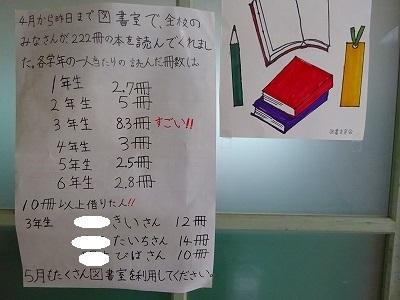 4月から昨日まで図書室で、全校の
みなさんが、222冊の本を読んでくれまし
た。各学年の一人当たりの読んだ冊数は
1年生 2.7冊
2年生 5冊
3年生 8.3冊 すごい!!
4年生 3冊
5年生 2.5冊
6年生 2.8冊
10冊以上借りた人!!
3年生 きいさん 12冊
たいちさん 14冊
びばさん 10冊
5月もたくさん図書室を利用してください。
図書委員会